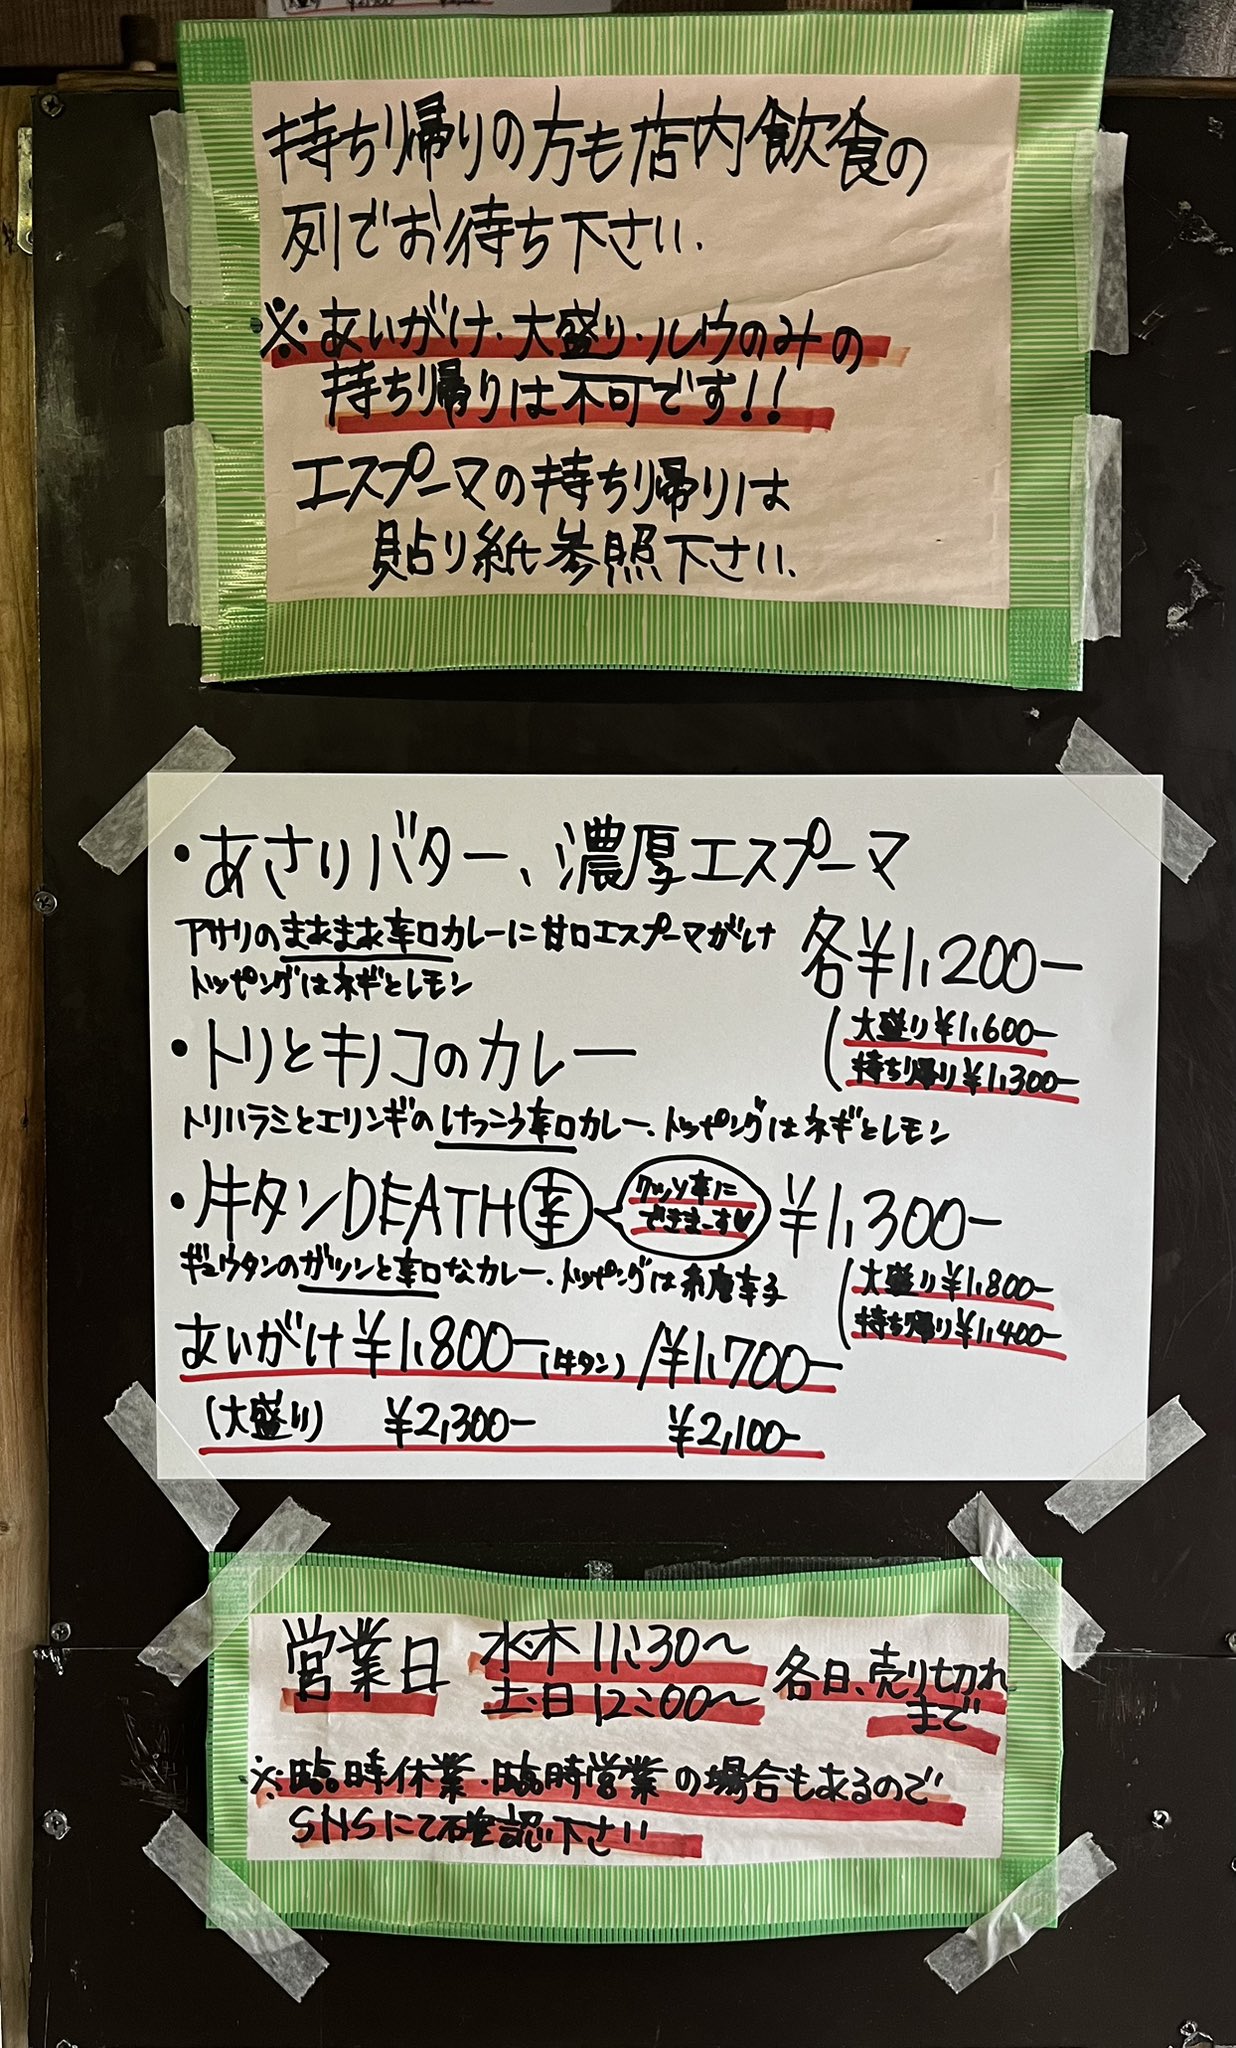 持ち帰りの方も店内飲食の
列でお待ち下さい.
※あいがけ・大盛り・ルウのみの
持ち帰りは不可です!!
エスプーマの持ち帰りは
貼り紙参照下さい.
・あさりバター、濃厚エスプーマ
アサリのまあまあ辛口カレーに甘口エスプーマがけ
トッピングはネギとレモン
各¥1,200-
(大盛り¥1,600-
持ち帰り¥1,300-
・トリとキノコのカレー
トリハラミとエリンギのけっこう辛口カレー、トッピングはネギとレモン
・牛タンDEATH辛
クッソ辛に
できまーす♥
¥1,300-
ギュウタンのガツンと辛口なカレー、トッピングは糸唐辛子
(大盛り¥1,800-
持ち帰り¥1,400-
あいがけ¥1,800-(牛タン)/¥1,700-
(大盛り) ¥2,300- ¥2,100-
営業日 水・木 11:30~
土・日 12:00~
各日、売り切れ
まで
※臨時休業・臨時営業の場合もあるので
SNSにて確認下さい